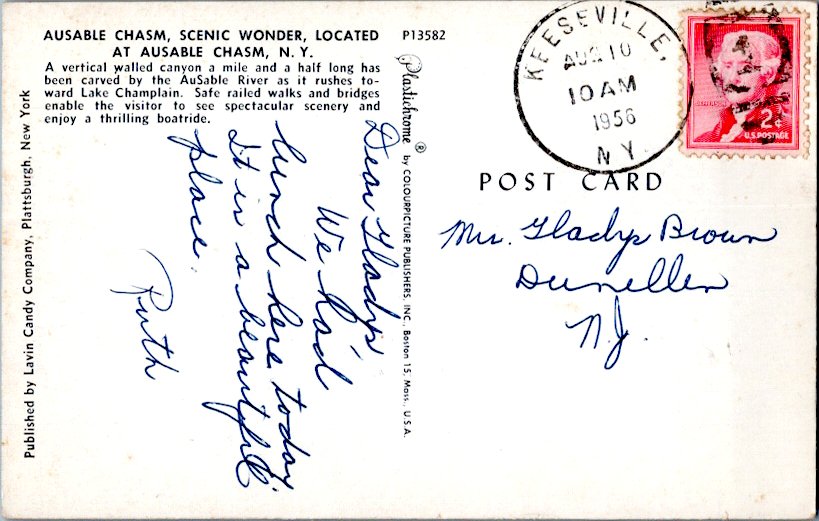 AUSABLE CHASM, SCENIC WONDER, LOCATED
AT AUSABLE CHASM, N. Y.
A vertical walled canyon a mile and a half long has
been carved by the AuSable River as it rushes to-
ward Lake Champlain. Safe railed walks and bridges
enable the visitor to see spectacular scenery and
enjoy a thrilling boatride.
Dear Gladys
We had
lunch here today.
It is a beautiful
place.
Ruth
Published by Lavin Candy Company, Plattsburgh, New York
P13582
Plastichrome ® by COLOURPICTURE PUBLISHERS, INC., Boston 15, Mass., U.S.A.
KEESEVILLE,
AUG 10
10 AM
1956
N.Y.
JEFFERSON
2¢
U.S. POSTAGE
POST CARD
Mrs. Gladys Brown
Dunellen
N.J.